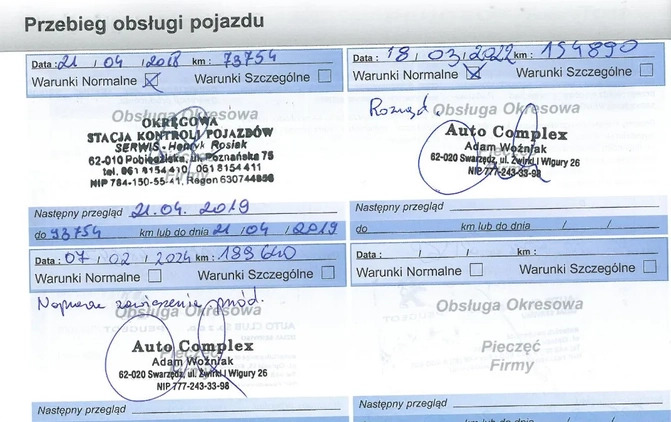 Przebieg obsługi pojazdu
Data : 21 / 04 / 2018 km : 73754
Warunki Normalne ☒ Warunki Szczególne ☐
Obsługa Okresowa
OKRĘGOWA
STACJA KONTROLI POJAZDÓW
SERWIS - Henryk Rosiak
62-010 Pobiedziska, ul. Poznańska 75
tel. 061 8154 410, 061 8154 411
NIP 784-150-55-41, Regon 630744856
Następny przegląd 21.04.2019
do 93754 km lub do dnia 21 / 04 / 2019
Data : 18 / 03 / 2022 km : 154890
Warunki Normalne ☒ Warunki Szczególne ☐
Obsługa Okresowa
Rozrząd.
Auto Complex
Adam Woźniak
Pieczęć
62-020 Swarzędz, ul. Żwirki i Wigury 26
NIP 777-243-33-98
Następny przegląd
do km lub do dnia / /
Data : 07 / 02 / 2024 km : 189640
Warunki Normalne ☐ Warunki Szczególne ☐
Naprawa zawieszenia przód.
Obsługa Okresowa
Auto Complex
Pieczęć
Adam Woźniak
62-020 Swarzędz, ul. Żwirki i Wigury 26
NIP 777-243-33-98
Następny przegląd
Data : / / km :
Warunki Normalne ☐ Warunki Szczególne ☐
Obsługa Okresowa
Pieczęć
Firmy
Następny przegląd